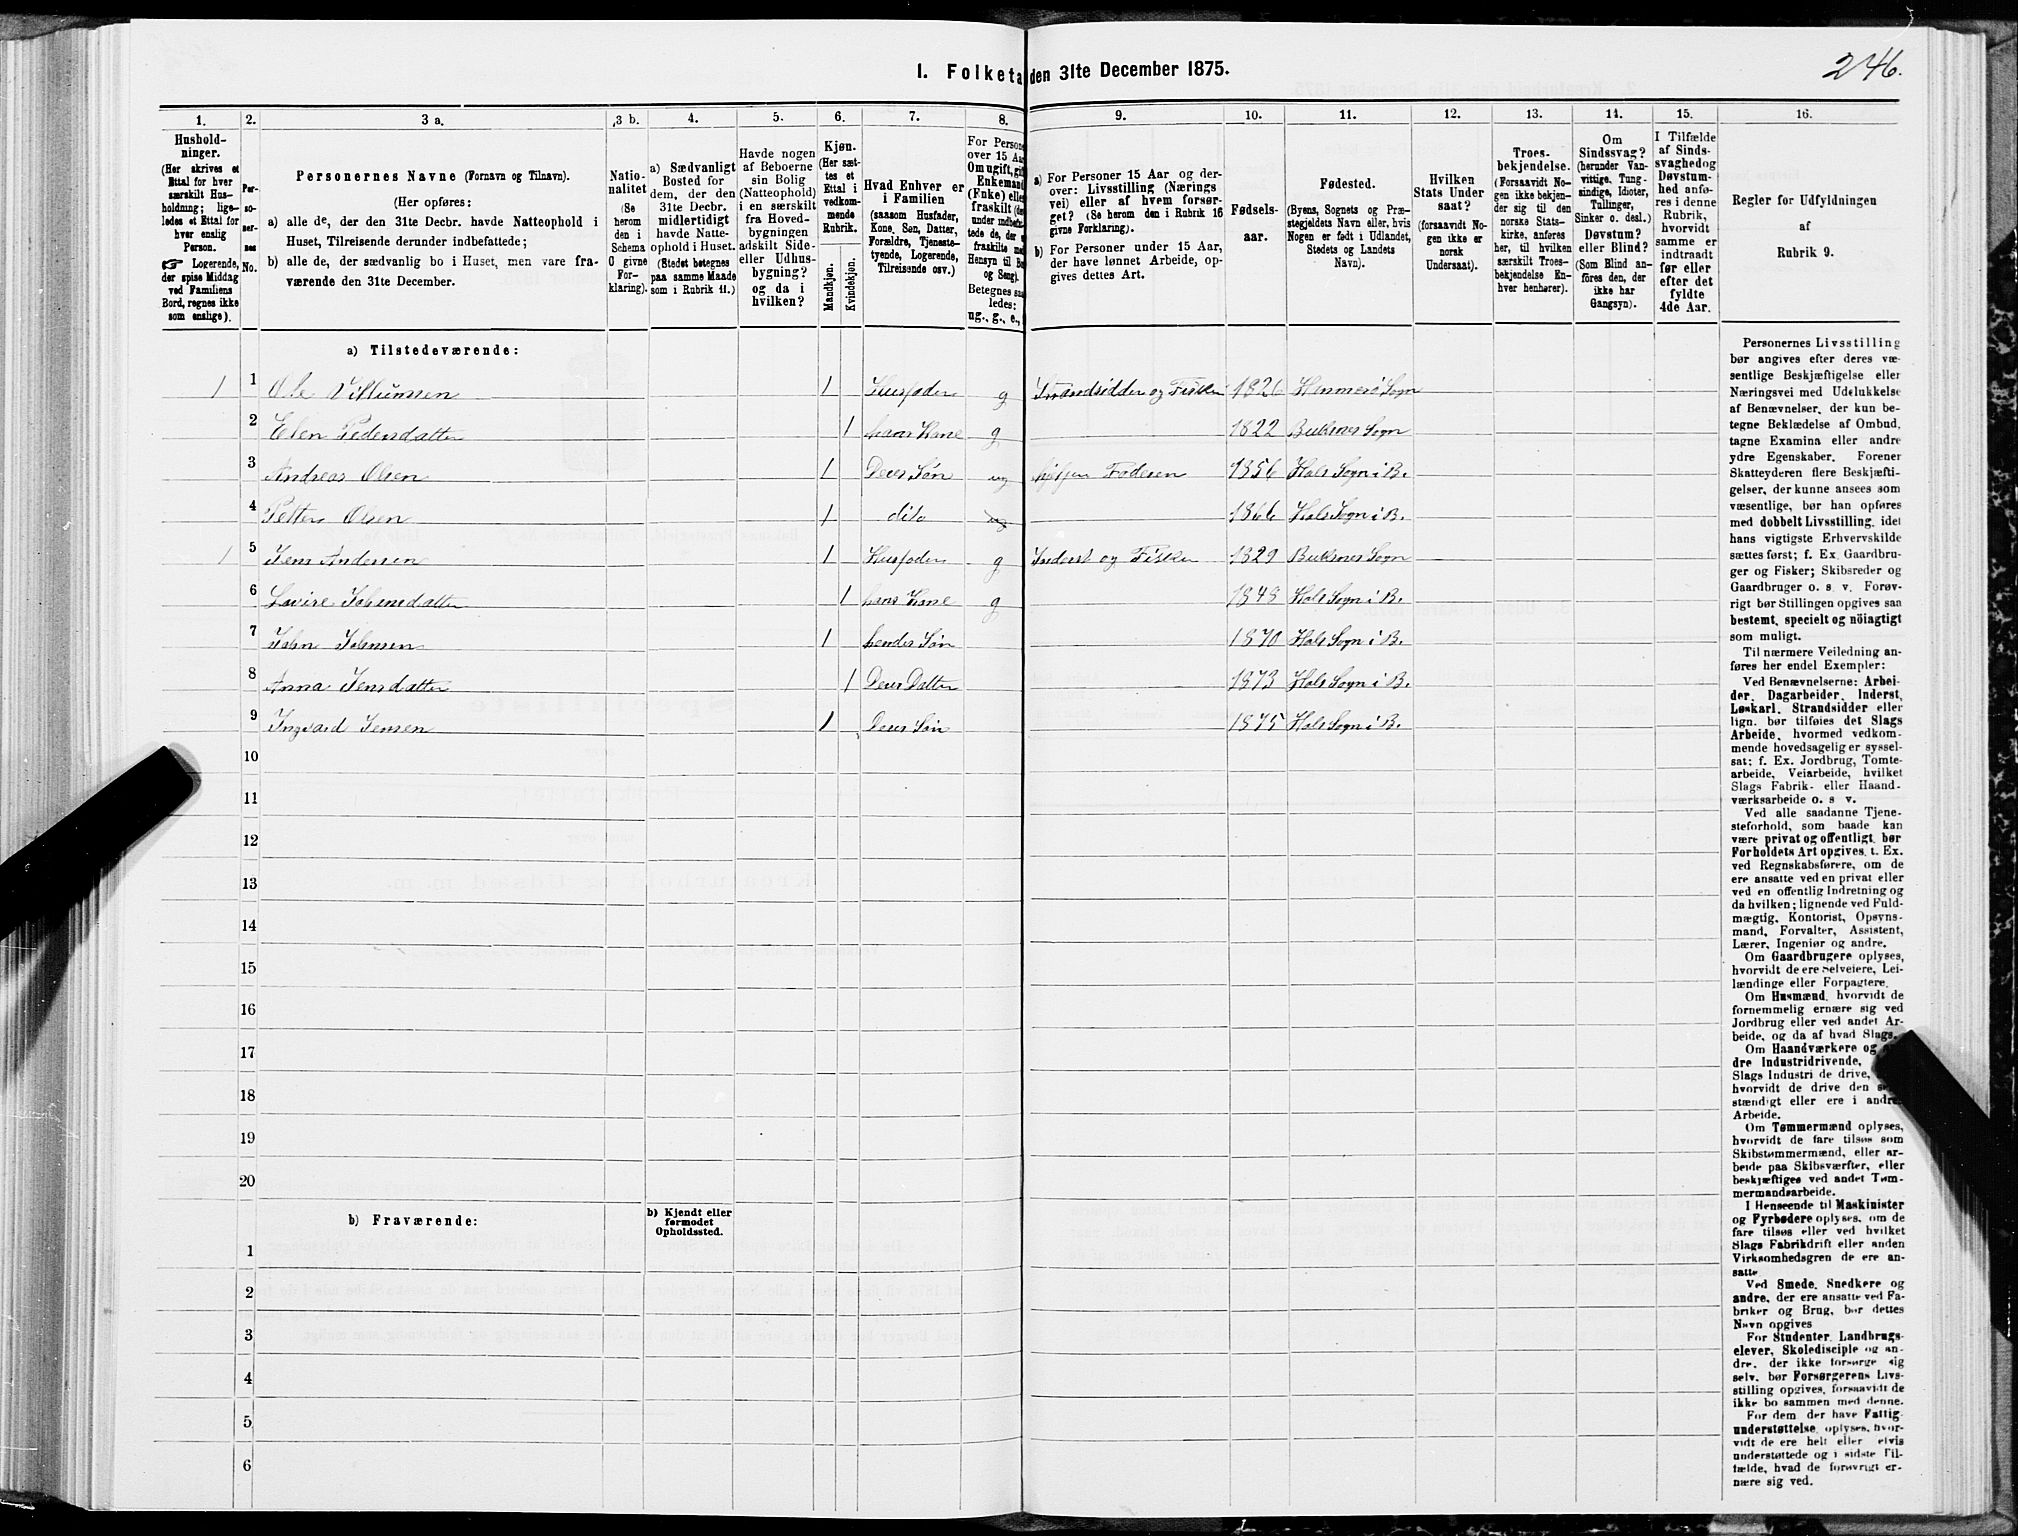 246.
1. Folketa den 31te December 1875.
1.
Hushold-
ninger.
(Her skrives et
Ettal for hver
særskilt Hus-
holdning; lige-
ledes et Ettal for
hver enslig
Person.
☞ Logerende,
der spise Middag
ved Familiens
Bord, regnes ikke
som enslige).
2.
Per-
so-
ner-
nes
No.
3 a.
Personernes Navne (Fornavn og Tilnavn).
(Her opføres:
a) alle de, der den 31te Decbr. havde Natteophold i
Huset, Tilreisende derunder indbefattede;
b) alle de, der sædvanlig bo i Huset, men vare fra-
værende den 31te December.
3 b.
Natio-
nalitet
(Se
herom
den i
Schema
O givne
For-
klaring).
4.
a) Sædvanligt
Bosted for
dem, der den
31te Decbr.
midlertidigt
havde Natte-
ophold i Huset.
(Stedet betegnes
paa samme Maade
som i Rubrik 11.)
5.
Havde nogen
af Beboerne
sin Bolig
(Natteophold)
i en særskilt
fra Hoved-
bygningen
adskilt Side-
eller Udhus-
bygning?
og da i
hvilken?
6.
Kjøn.
(Her sæt-
tes et
Ettal i
vedkom-
mende
Rubrik.
Mandkjøn.
Kvindekjøn.
7.
Hvad Enhver er
i Familien
(saasom Husfader,
Kone, Søn, Datter,
Forældre, Tjeneste-
tyende, Logerende,
Tilreisende osv.)
8.
For Persone
over 15 Aa
Om ugift, gi
Enkemand
(Enke) elle
fraskilt (de
under indbefat-
tede de, der e
fraskilte me
Hensyn til Bo
og Seng).
Betegnes saa
ledes:
ug., g., e.,
9.
a) For Personer 15 Aar og der-
over: Livsstilling (Nærings
vei) eller af hvem forsør-
get? (Se herom den i Rubrik 16
givne Forklaring).
b) For Personer under 15 Aar,
der have lønnet Arbeide, op-
gives dettes Art.
10.
Fødsels-
aar.
11.
Fødested.
(Byens, Sognets og Præ-
stegjeldets Navn eller, hvis
Nogen er født i Udlandet,
Stedets og Landets
Navn).
12.
Hvilken
Stats Under
saat?
(forsaavidt No-
gen ikke er
norsk
Undersaat).
13.
Troes-
bekjendelse.
(Forsaavidt No-
gen ikke bekjen-
der sig til den
norske Stats-
kirke, anføres
her, til hvilken
særskilt Troes-
bekjendelse En-
hver henhører).
14.
Om
Sindssvag?
(herunder Van-
vittige, Tung-
sindige, Idioter,
Tullinger,
Sinker o. desl.)
Døvstum?
eller Blind?
(Som Blind an-
føres den, der
ikke har
Gangsyn).
15.
I Tilfælde
af Sinds-
svaghed og
Døvstum-
hed anfø-
res i denne
Rubrik,
hvorvidt
samme er
indtraadt
før eller
efter det
fyldte
4de Aar.
16.
Regler for Udfyldningen
af
Rubrik 9.
a) Tilstedeværende:
1 1 Ole Villumsen 1 Husfader g Strandsidder og Fisker 1826 Hammerö Sogn
2 Elen Pedersdatter 1 hans Kone g 1822 Buksnes Sogn
3 Andreas Olsen 1 Deres Søn ug hjelper Faderen 1856 Hols Sogn i B.
4 Petter Olsen 1 dito ug 1866 Hols Sogn i B.
1 5 Jens Andersen 1 Husfader g Inderst og Fisker 1829 Buksnes Sogn
6 Lovise Johnsdatter 1 hans Kone g 1848 Hols Sogn i B.
7 John Johnsen 1 hendes Søn 1870 Hols Sogn i B.
8 Anna Jensdatter 1 Deres Datter 1873 Hols Sogn i B.
9 Ingvard Jensen 1 Deres Søn 1875 Hols Sogn i B.
10
11
12
13
14
15
16
17
18
19
20
b) Fraværende:
b) Kjendt eller
formodet
Opholdssted.
1
2
3
4
5
6
Personernes Livsstilling
bør angives efter deres væ-
sentlige Beskjæftigelse eller
Næringsvei med Udelukkelse
af Benævnelser, der kun be-
tegne Beklædelse af Ombud,
tagne Examina eller andre
ydre Egenskaber. Forener
Skatteyderen flere Beskjæfti-
gelser, der kunne ansees som
væsentlige, bør han opføres
med dobbelt Livsstilling, idet
hans vigtigste Erhvervskilde
sættes først; f. Ex. Gaardbru-
ger og Fisker; Skibsreder og
Gaardbruger o. s. v. Forøv-
rigt bør Stillingen opgives saa
bestemt, specielt og nöiagtigt
som muligt.
Til nærmere Veiledning an-
føres her endel Exempler:
Ved Benævnelserne: Arbei-
der, Dagarbeider, Inderst,
Løskarl, Strandsidder eller
lign. bør tilføies det Slags
Arbeide, hvormed vedkom-
mende hovedsagelig er syssel-
sat; f. Ex. Jordbrug, Tomte-
arbeide, Veiarbeide, hvilket
Slags Fabrik- eller Haand-
værksarbeide o. s v.
Ved alle saadanne Tjene-
steforhold, som baade kan
være privat og offentligt, bør
Forholdets Art opgives, t. Ex.
ved Regnskabsførere, om de
ere ansatte ved en privat eller
ved en offentlig Indretning og
da hvilken; lignende ved Fuld-
mægtig, Kontorist, Opsyns-
mand, Forvalter, Assistent,
Lærer, Ingeniør og andre.
Om Gaardbrugere oplyses,
hvorvidt de ere Selveiere, Lei-
lændinge eller Forpagtere.
Om Husmænd, hvorvidt de
fornemmelig ernære sig ved
Jordbrug eller ved andet Ar-
beide, og da af hvad Slags.
Om Haandværkere og
dre Industridrivende,
Slags Industri de drive,
hvorvidt de drive den
stændigt eller ere i andres
Arbeide.
Om Tømmermænd oplyses,
hvorvidt de fare tilsøs som
Skibstømmermænd, eller ar-
beide paa Skibsværfter, eller
beskjæftiges ved andet Tøm-
mermandsarbeide.
I Henseende til Maskinister
og Fyrbødere oplyses, om de
fare tilsøs eller ved hvilket
Slags Fabrikdrift eller anden
Virksomhedsgren de ere an-
satte
Ved Smede, Snedkere og
andre, der ere ansatte ved Fa-
briker og Brug, bør dettes
Navn opgives
For Studenter, Landbrugs-
elever, Skoledisciple og an-
dre, der ikke forsørge sig
selv, bør Forsørgerens Livs-
stilling opgives, forsaavidt de
ikke bo sammen med denne.
For dem der have Fattig-
understøttelse, oplyses, hvor-
vidt de ere helt eller delvis
understøttede og i sidste Til-
fælde, hvad de forøvrigt er-
nære sig ved.